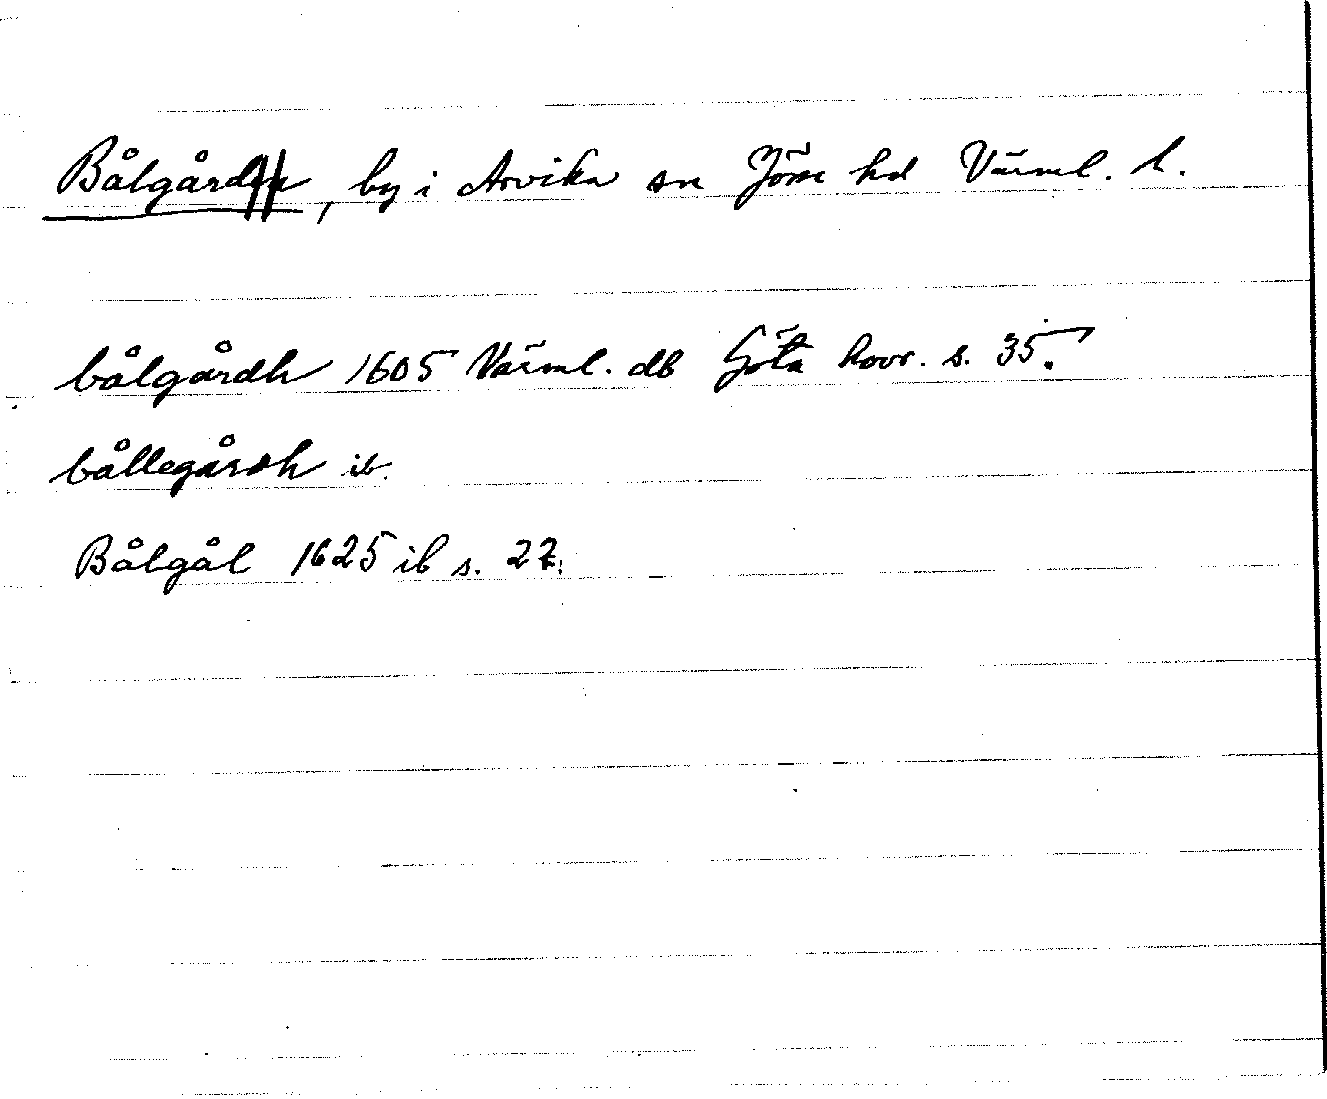 Bålgård, by i Arvika sn Jösse hd Värml. l.
bålgårdh 1605 Värml. db Göta hovr. s. 35.
bållegårdh ib.
Bålgål 1625 ib s. 27.